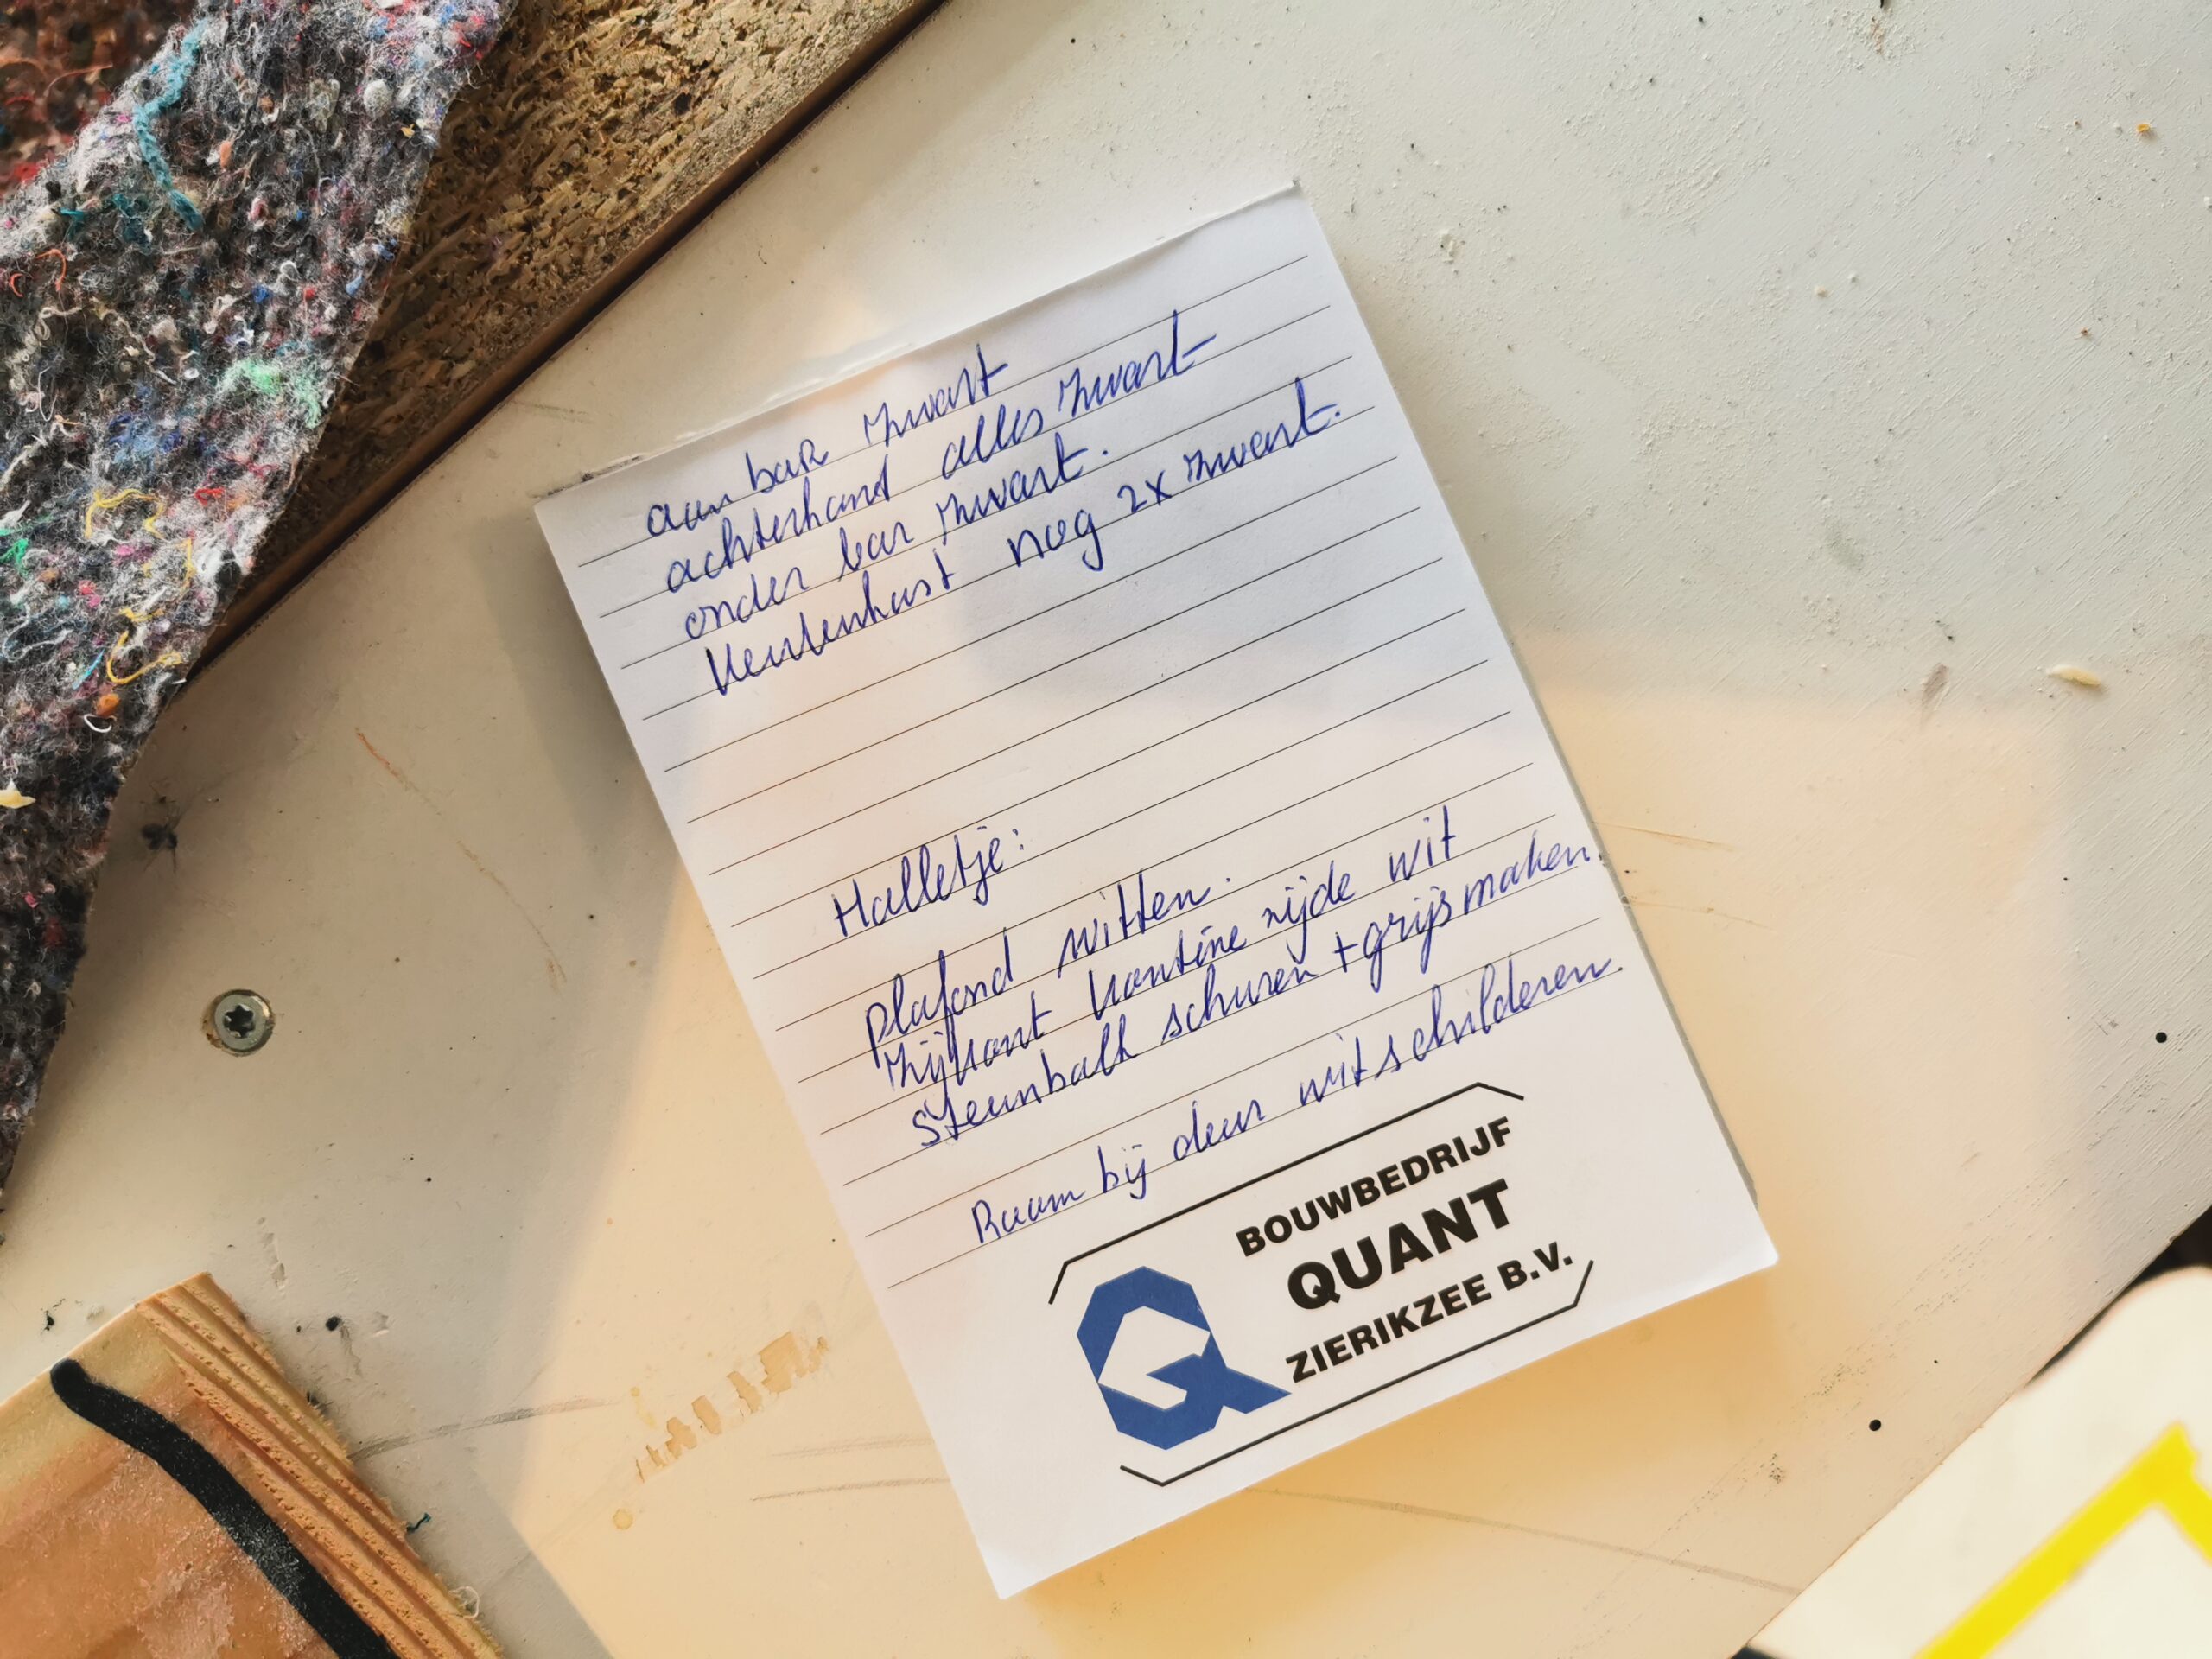 aan bar zwart
achterhand alles zwart
onder bar zwart.
Keukenkast nog 2x zwart.
Halletje:
plafond witten.
zijkant kantine zijde wit
Steunbalk schuren + grijs maken.
Raam bij deur wit schilderen.
BOUWBEDRIJF
QUANT
ZIERIKZEE B.V.